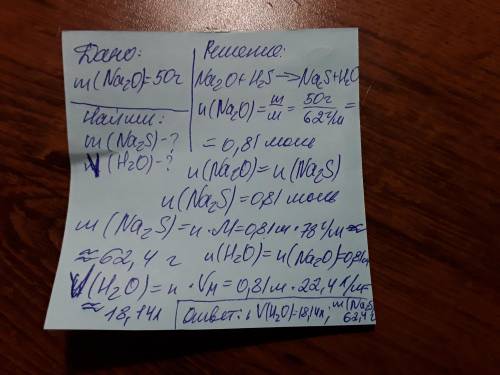 Дано:
m(Na₂O)=50г
Найти:
m(Na₂S)-?
V(H₂O)-?
Решение:
Na₂O+H₂S→Na₂S+H₂O
n(Na₂O)=m/M=50г/62г/м=
=0,81 моль
n(Na₂O)=n(Na₂S)
n(Na₂S)=0,81 моль
m(Na₂S)=n·M=0,81м·78г/м≈
≈62,4 г n(H₂O)=n(Na₂O)=0,81м
V(H₂O)=n·Vм=0,81м·22,4л/м=
≈18,14л
Ответ: V(H₂O)=18,14л; m(Na₂S)
62,4г